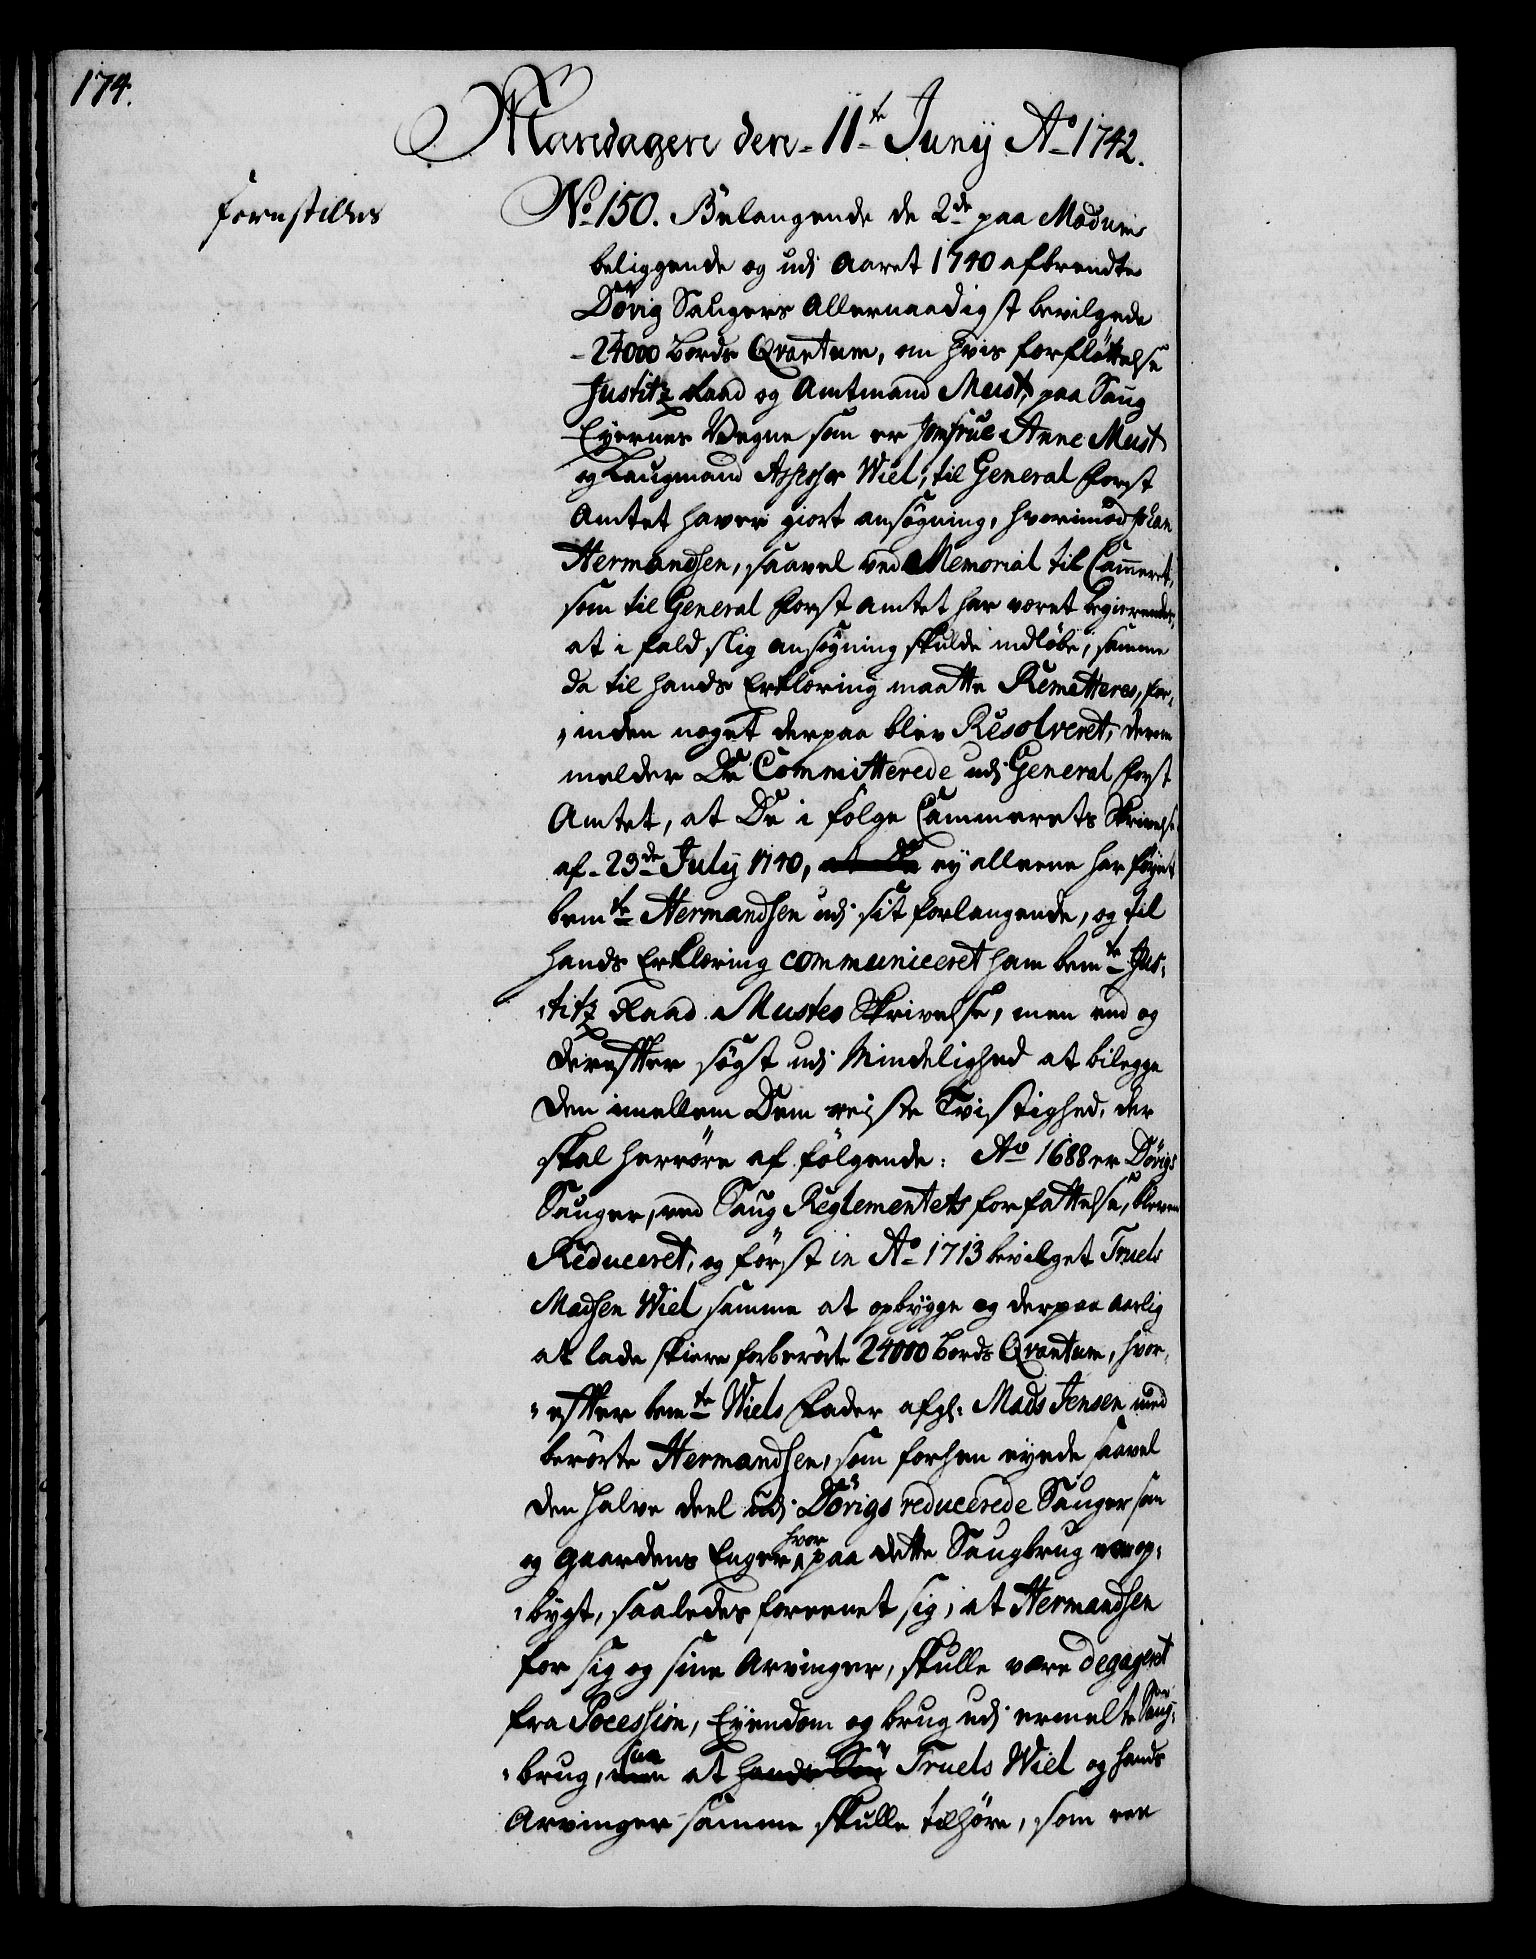 174.
Mandagen den 11te Junij Ao 1742.
Forestilles
No 150. Belangende de 2de paa Modum
beliggende og udj Aaret 1740 afbrendte
Dövig Saugers Allernaadigst bevilgede
24000 Bords Qvantum, om hvis forfløttelse
Justitz Raad og Amtmand Must, paa Saug
Eyernes Vegne som er Jomfrue Anne Must
og Laugmand Assessor Wiel, til General Forst
Amtet haver giort ansøgning, hvorimod Johan
Hermandsen, saavel ved Memorial til Cammeret,
som til General Forst Amtet har været begierendes,
at i fald slig ansøgning skulde indløbe, samme
da til hands Erklæring maatte Remitteres, for,
,inden noget derpaa blev Resolveret, derom
melder De Committerede udj General Forst
Amtet, at De i følge Cammerets Skrivelse
af 23de Julij 1740, at De ey alleene har føyet
bemte Hermandsen udj sit forlangende, og til
hands Erklæring communiceret ham bemte Jus,
,titz Raad Mustes Skrivelse, men end og
derefter søgt udj Mindelighed at bilegge
den imellem Dem reiste Tvistighed, der
skal herröre af følgende: Ao 1688 er Dövigs
Sauger, ved Saug Reglementets forfattelse, bleven
Reduceret, og først in Ao 1713 bevilget Truels
Madsen Wiel samme at opbygge og derpaa aarlig
at lade skiere forberørte 24000 Bords Qvantum, hvor,
,efter bemte Wiels Fader afg: Mads Jensen med
berørte Hermandsen, som forhen eyede saavel
den halve deel udj Dövigs reducerede Sauger som
og gaardens Enger, hvor paa dette Saugbrug var op,
,bygt, saaledes foreenet sig, at Hermandsen
for sig og sine Arvinger, skulle være degageret
fra Pocession, Eyendom og brug udj ermelte Saug,
,brug, men saa at hands Søn Truels Wiel og hands
Arvinger samme skulle tilhøre, som een